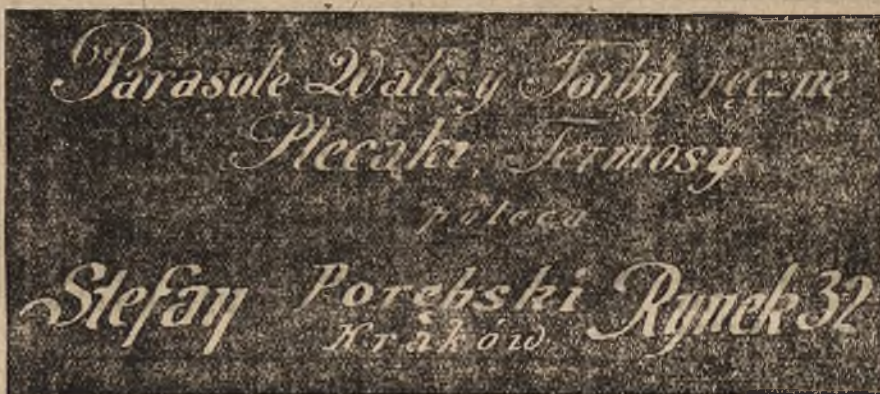 Parasole Walizy Torby ręczne
Plecaki, Termosy
poleca
Stefan Porębski Rynek 32
Kraków